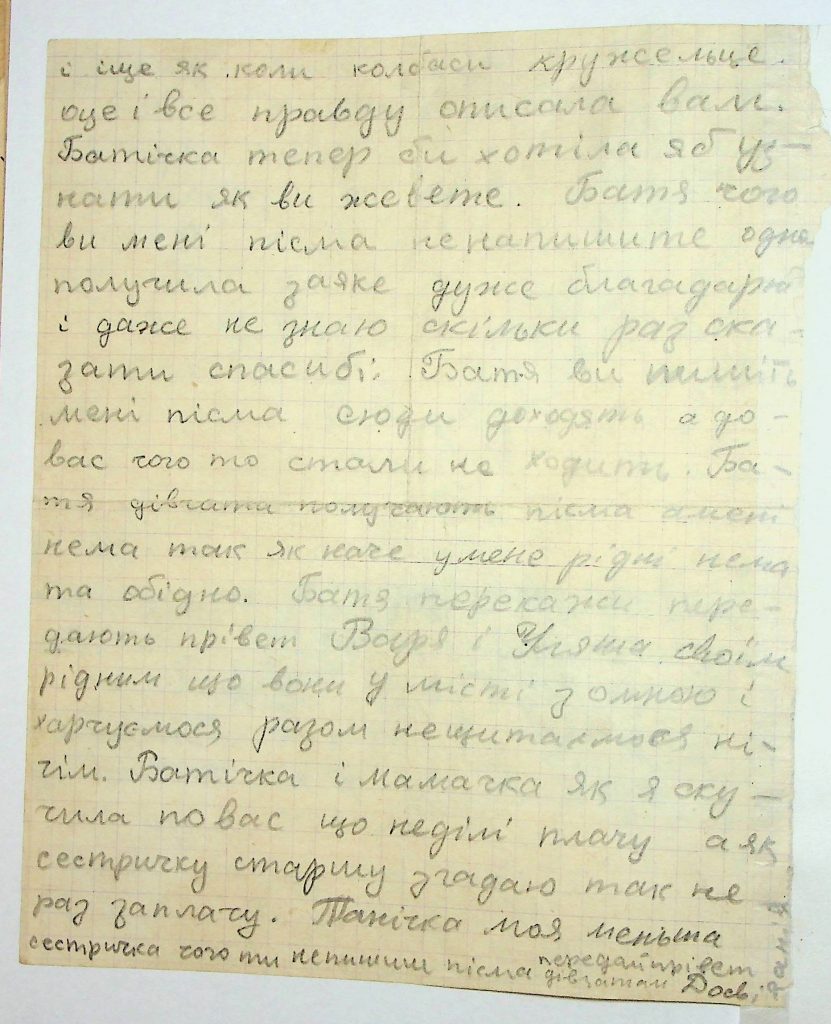 і іще як коли колбаси кружельце.
оце і все правду описала вам.
Батічка тепер би хотіла я б уз-
нати як ви жевете. Батя чого
ви мені пісма ненапишите одно
получила заяке дуже благадарю
і даже не знаю скільки раз ска-
зати спасибі. Батя ви пишіть
мені пісма сюди доходять а до-
вас чого то стали не ходить. Ба-
тя дівчата получають пісма амені
нема так як наче умене рідні нема
та обідно. Батя перекажи пере-
дають прівет Варя і Уляша своїм
рідним що вони у місті зомною і
харчуємося разом нещитаємося ні-
чім. Батічка і мамачка як я ску-
чила повас що неділі плачу а як
сестричку старшу згадаю так не
раз заплачу. Танічка моя меньша
сестричка чого ти непишиш пісма передай прівет
дівчатам Досві
танія